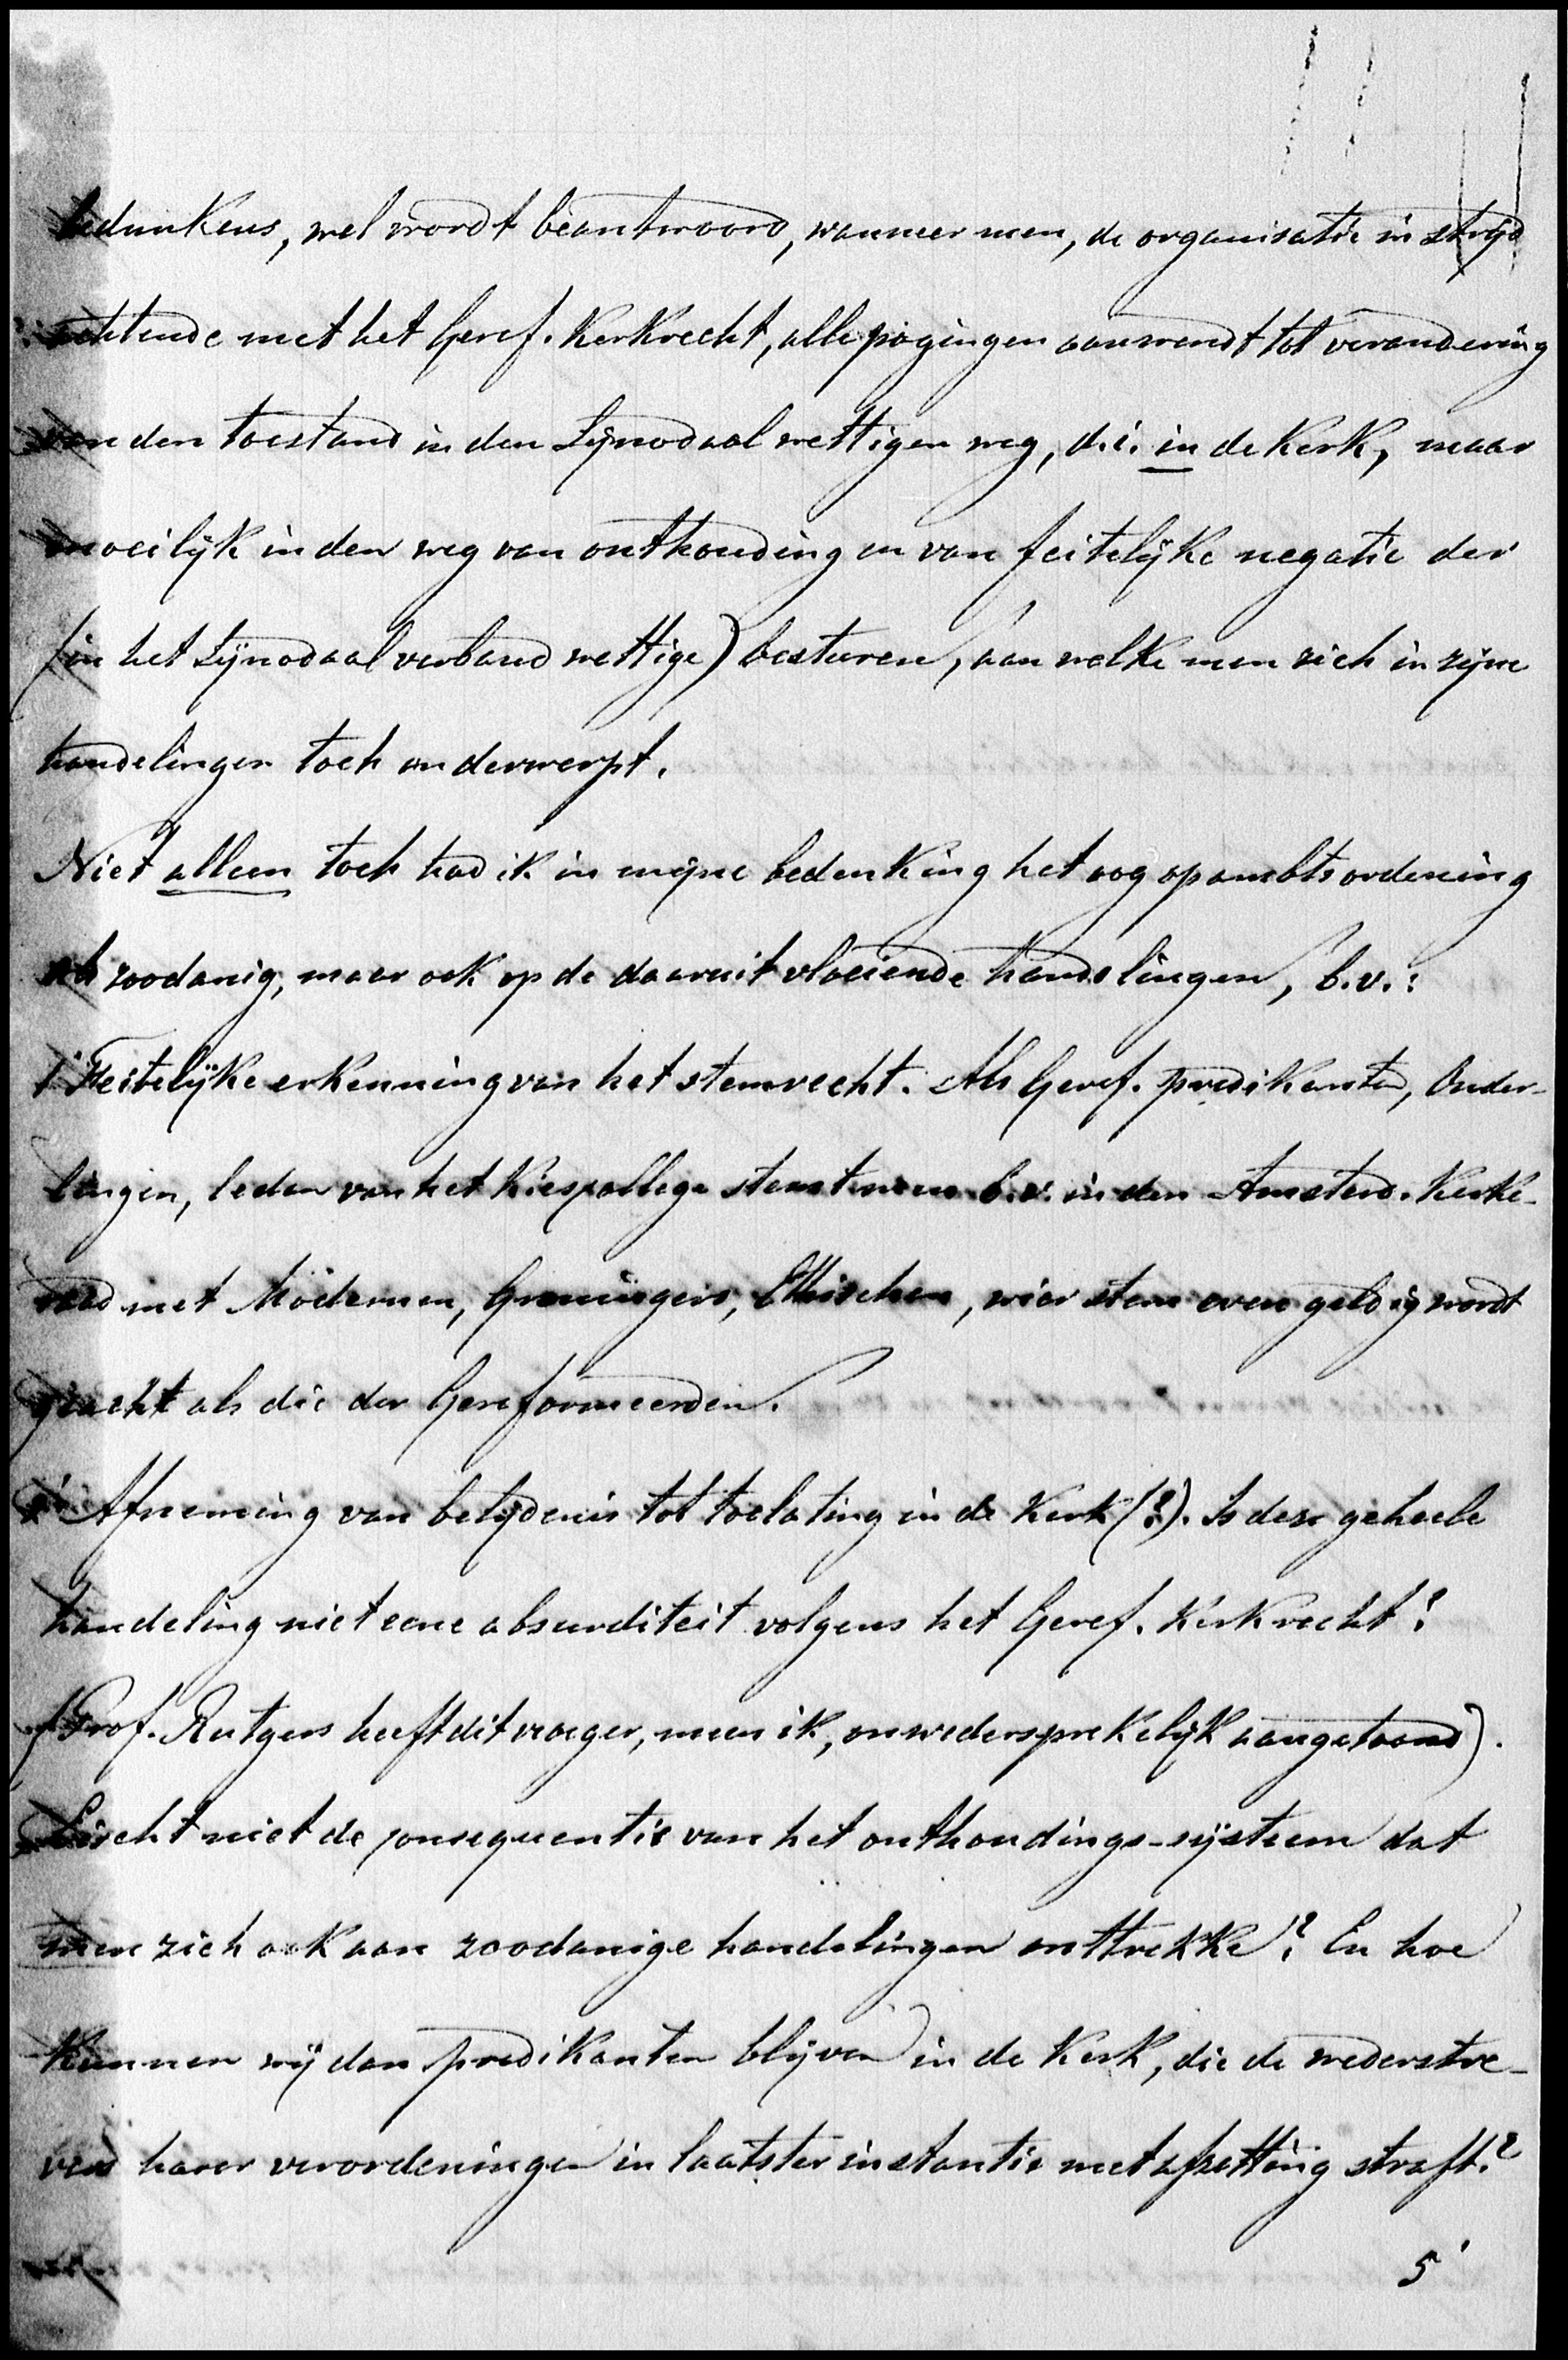 bedunkens, wel wordt beantwoord, wanneer men, de organisatie in strijd
achtende met het Geref. Kerkrecht, alle pogingen aanwendt tot verandering
van den toestand in den Synodaal wettigen weg, d.i. in de Kerk, maar
moeilijk in den weg van onthouding en van feitelijke negatie der
(in het Synodaal verband wettige) besturen, aan welke men zich in zijne
handelingen toch onderwerpt.
Niet alleen toch had ik in mijne bedenking het oog op ambtsordening
als zoodanig, maar ook op de daaruit vloeiende handelingen, b.v.:
1° Feitelijke erkenning van het stemrecht. Als Geref. predikanten, Ouder-
lingen, leden van het Kiescollege stemt men b.v. in den Amsterd. Kerke-
raad met Modernen, Groningers, Ethischen, wier stem even geldig wordt
geacht als die der Gereformeerden.
2° Afneming van belijdenis tot toelating in de Kerk (?). Is deze geheele
handeling niet eene absurditeit volgens het Geref. Kerkrecht?
(Prof. Rutgers heeft dit vroeger, meen ik, onwedersprekelijk aangetoond).
Eischt niet de consequentie van het onthoudings-systeem dat
men zich ook aan zoodanige handelingen onttrekke? En hoe
kunnen wij dan predikanten blijven in de Kerk, die de wederstre-
vers harer verordeningen in laatster instantie met afzetting straft?
5'